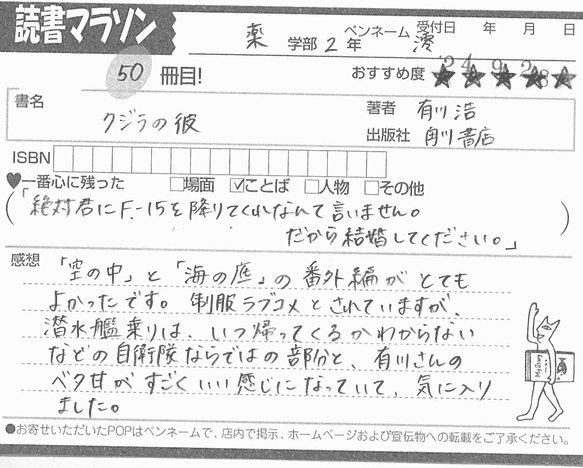 読書マラソン
薬 学部 2 年 ペンネーム 澪 受付日 年 月 日
50 冊目! おすすめ度 ★★★★★
書名 クジラの彼 著者 有川 浩
出版社 角川書店
ISBN
♥一番心に残った □場面 ☑ことば □人物 □その他
(「絶対君にF-15を降りてくれなんて言いません。
だから結婚してください。」)
感想 「空の中」と「海の底」の番外編がとても
よかったです。制服ラブコメとされていますが、
潜水艦乗りは、いつ帰ってくるかわからない
などの自衛隊ならではの部分と、有川さんの
ベタ甘がすごくいい感じになっていて、気に入り
ました。
●お寄せいただいたPOPはペンネームで、店内で掲示、ホームページおよび宣伝物への転載をご了承ください。